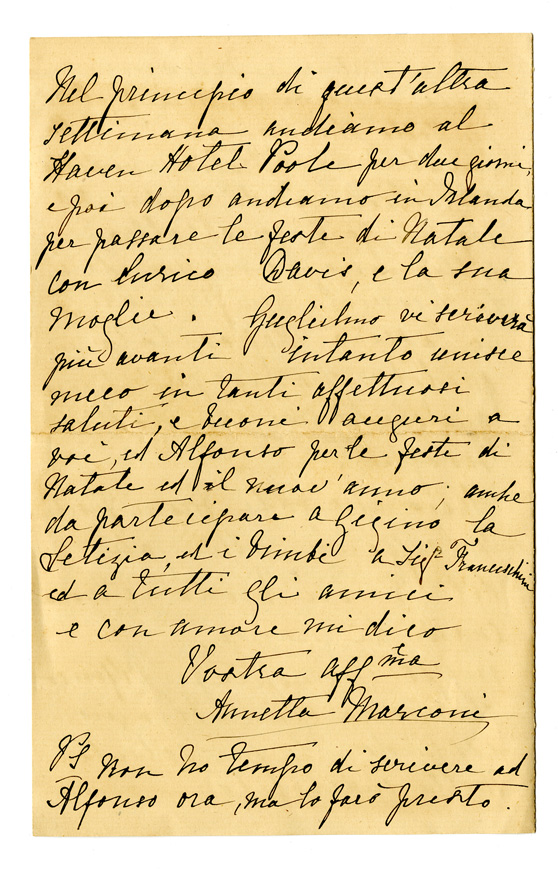 Nel principio di quest'altra
settimana andiamo al
Haven Hotel Poole per due giorni,
e poi dopo andiamo in Irlanda
per passare le feste di Natale
con Enrico Davis, e la sua
moglie. Guglielmo vi scriverà
più avanti intanto unisce
meco in tanti affettuosi
saluti, e buoni auguri a
voi, ed Alfonso per le feste di
Natale ed il nuov'anno; anche
da partecipare a Gigino la
Letizia, ed i bimbi a Sigra Franceschini
ed a tutti gli amici
e con amore mi dico
Vostra affma
Annetta Marconi
PS non ho tempo di scrivere ad
Alfonso ora, ma lo farò presto.